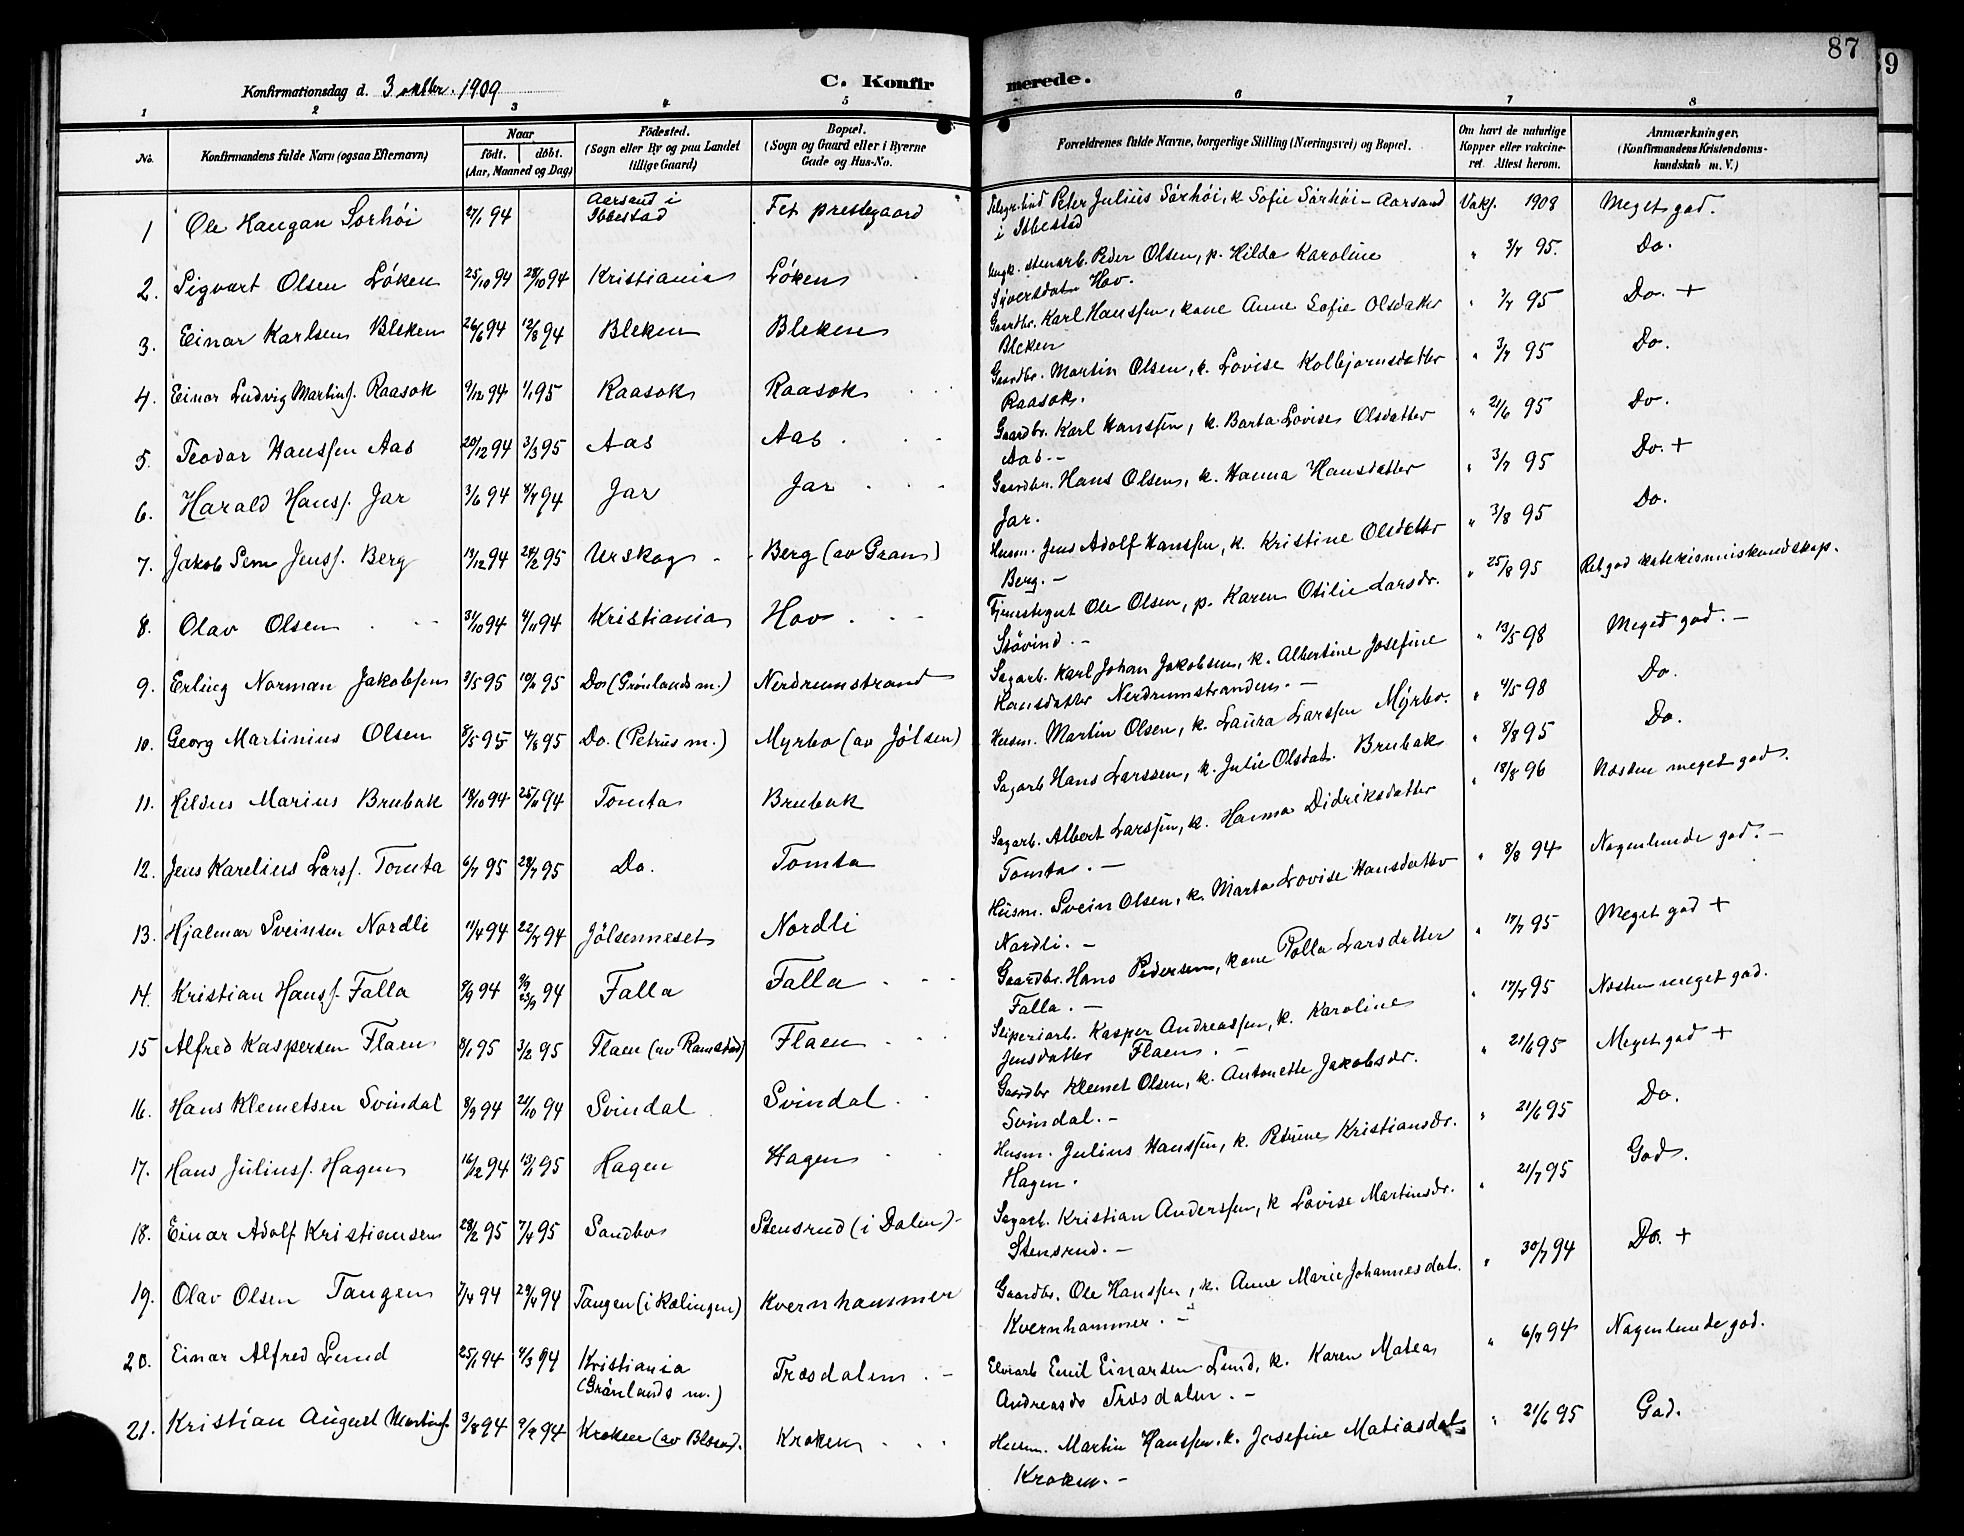 87
9
Konfirmationsdag d. 3 oktbr. 1909
C. Konfir
merede.
1 2 3 4 5 6 7 8
No. Konfirmandens fulde Navn (ogsaa Efternavn) Naar født. døbt. (Aar, Maaned og Dag) Födested. (Sogn eller By og paa Landet tillige Gaard) Bopæl. (Sogn og Gaard eller i Byerne Gade og Hus-No. Forældrenes fulde Navne, borgerlige Stilling (Næringsvei) og Bopæl. Om havt de naturlige Kopper eller vakcineret. Attest herom. Anmærkninger. (Konfirmandens Kristendomskundskab m. V.)
1 Ole Haugan Sørhöi 27/1 94 Aarsand i Ibbestad Fet prestegaard Peter Julius Sörhöi, k Sofie Sörhöi - Aarsand i Ibbestad Vaks. 1908 Meget god.
2. Sigvart Olsen Löken 25/10 94 28/10 94 Kristiania Löken Ungk. stenarb. Peder Olsen, p. Hilda Karoline Syversdatr Hov. " 3/7 95. Do.
3. Einar Karlsen Bleken 26/6 94 12/8 94 Bleken Bleken Gaardbr. Karl Hanssen, kone Anne Sofie Olsdatter Bleken " 3/7 95 Do. +
4. Einar Ludvig Martins. Raasok 9/12 94 1/1 95 Raasok Raasok Gaardbr. Martin Olsen, k. Lovise Kolbjörnsdatter Raasok. " 3/7 95 Do.
5. Teodor Hanssen Aas 20/12 94 3/3 95 Aas Aas Gaardbr. Karl Hanssen, k. Barta Lovise Olsdatter Aas. - " 21/6 95 Do.
6. Harald Hanss. Jar 3/6 94 8/7 94 Jar Jar Gaardbr. Hans Olsen, k. Hanna Hansdatter Jar. " 3/7 95 Do. +
7. Jakob Sem Jenss. Berg 13/12 94 28/2 95 Urskog Berg (av Gran) Husm. Jens Adolf Hanssen, k. Kristine Olsdatter Berg. - " 3/8 95 Do.
8. Olav Olsen 31/10 94 4/11 94 Kristiania Hov Tjenestegut Ole Olsen, p. Karen Otilie Larsdr. Stövind. - " 25/8 95 Ret god katekismiskundskap.
9. Erling Norman Jakobsen 3/5 95 10/11 95 Do (Grönlands m.) Nerdrumstrand Sagarb. Karl Johan Jakobsen, k. Albertine Josefine Hansdatter Nerdrumstranden. - " 13/5 98 Meget god. -
10. Georg Martinius Olsen 8/5 95 4/8 95 Do. (Petrus m.) Myrbo (av Jölsen) Husm. Martin Olsen, k. Laura Larssen Myrbo. " 4/5 98 Do.
11. Hildus Marius Brubak 18/10 94 25/11 94 Tomta Brubak Sagarb Hans Larssen, k. Julie Olsdat. Brubak " 8/8 95 Do.
12. Jens Karelius Larss. Tomta 6/7 95 28/7 95 Do. Tomta Sagarb. Albert Larssen, k. Hanna Didriksdatter Tomta. - " 18/8 96 Næsten meget god.
13. Hjalmar Sveinsen Nordli 11/4 94 22/7 94 Jölsenneset Nordli Husm. Svein Olsen, k. Marta Lovise Hansdatter Nordli. - " 8/8 94 Nogenlunde god. -
14. Kristian Hanss. Falla 8/9 94 9/9 23/9 94 Falla Falla Gaardbr. Hans Pedersen, kone Polla Larsdatter Falla. - " 17/7 95 Meget god +
15 Alfred Kaspersen Flaen 8/1 95 3/2 95 Flaen (av Ramstad) Flaen Sliperiarb. Kasper Andreassen, k. Karoline Jensdatter Flaen. - " 17/7 95 Næsten meget god.
16. Hans Klemetsen Svindal 8/9 94 21/10 94 Svindal Svindal Gaardbr Klemet Olsen, k. Antonette Jakobsdr. Svindal. - " 21/6 95 Meget god +
17. Hans Juliuss. Hagen 16/12 94 13/1 95 Hagen Hagen Husm. Julius Hanssen, k. Petrine Kristiansdr. Hagen. " 21/6 95 Do.
18. Einar Adolf Kristiansen 28/2 95 7/4 95 Sandbo Stensrud (i Dalen) - Sagarb. Kristian Anderssen, k Lovise Martinsdr. Stensrud. - " 21/7 95 God.
19. Olav Olsen Tangen 7/4 94 29/4 94 Tangen (i Rælingen) Kvernhammer Gaardbr. Ole Hanssen, k. Anne Marie Johannesdat. Kvernhammer. - " 30/7 94 Do. +
20. Einar Alfred Lund 25/1 94 4/3 94 Kristiania (Grönlands m.) Trosdalen Elvearb Emil Einarsen Lund, k. Karen Matea Andreasdr Trosdalen. - " 6/7 94 Nogenlunde god.
21. Kristian August Martins. 3/8 94 9/9 94 Kroken (av Kroken Husm. Martin Hanssen, k. Josefine Matiasdat Kroken. - " 21/6 95 God.